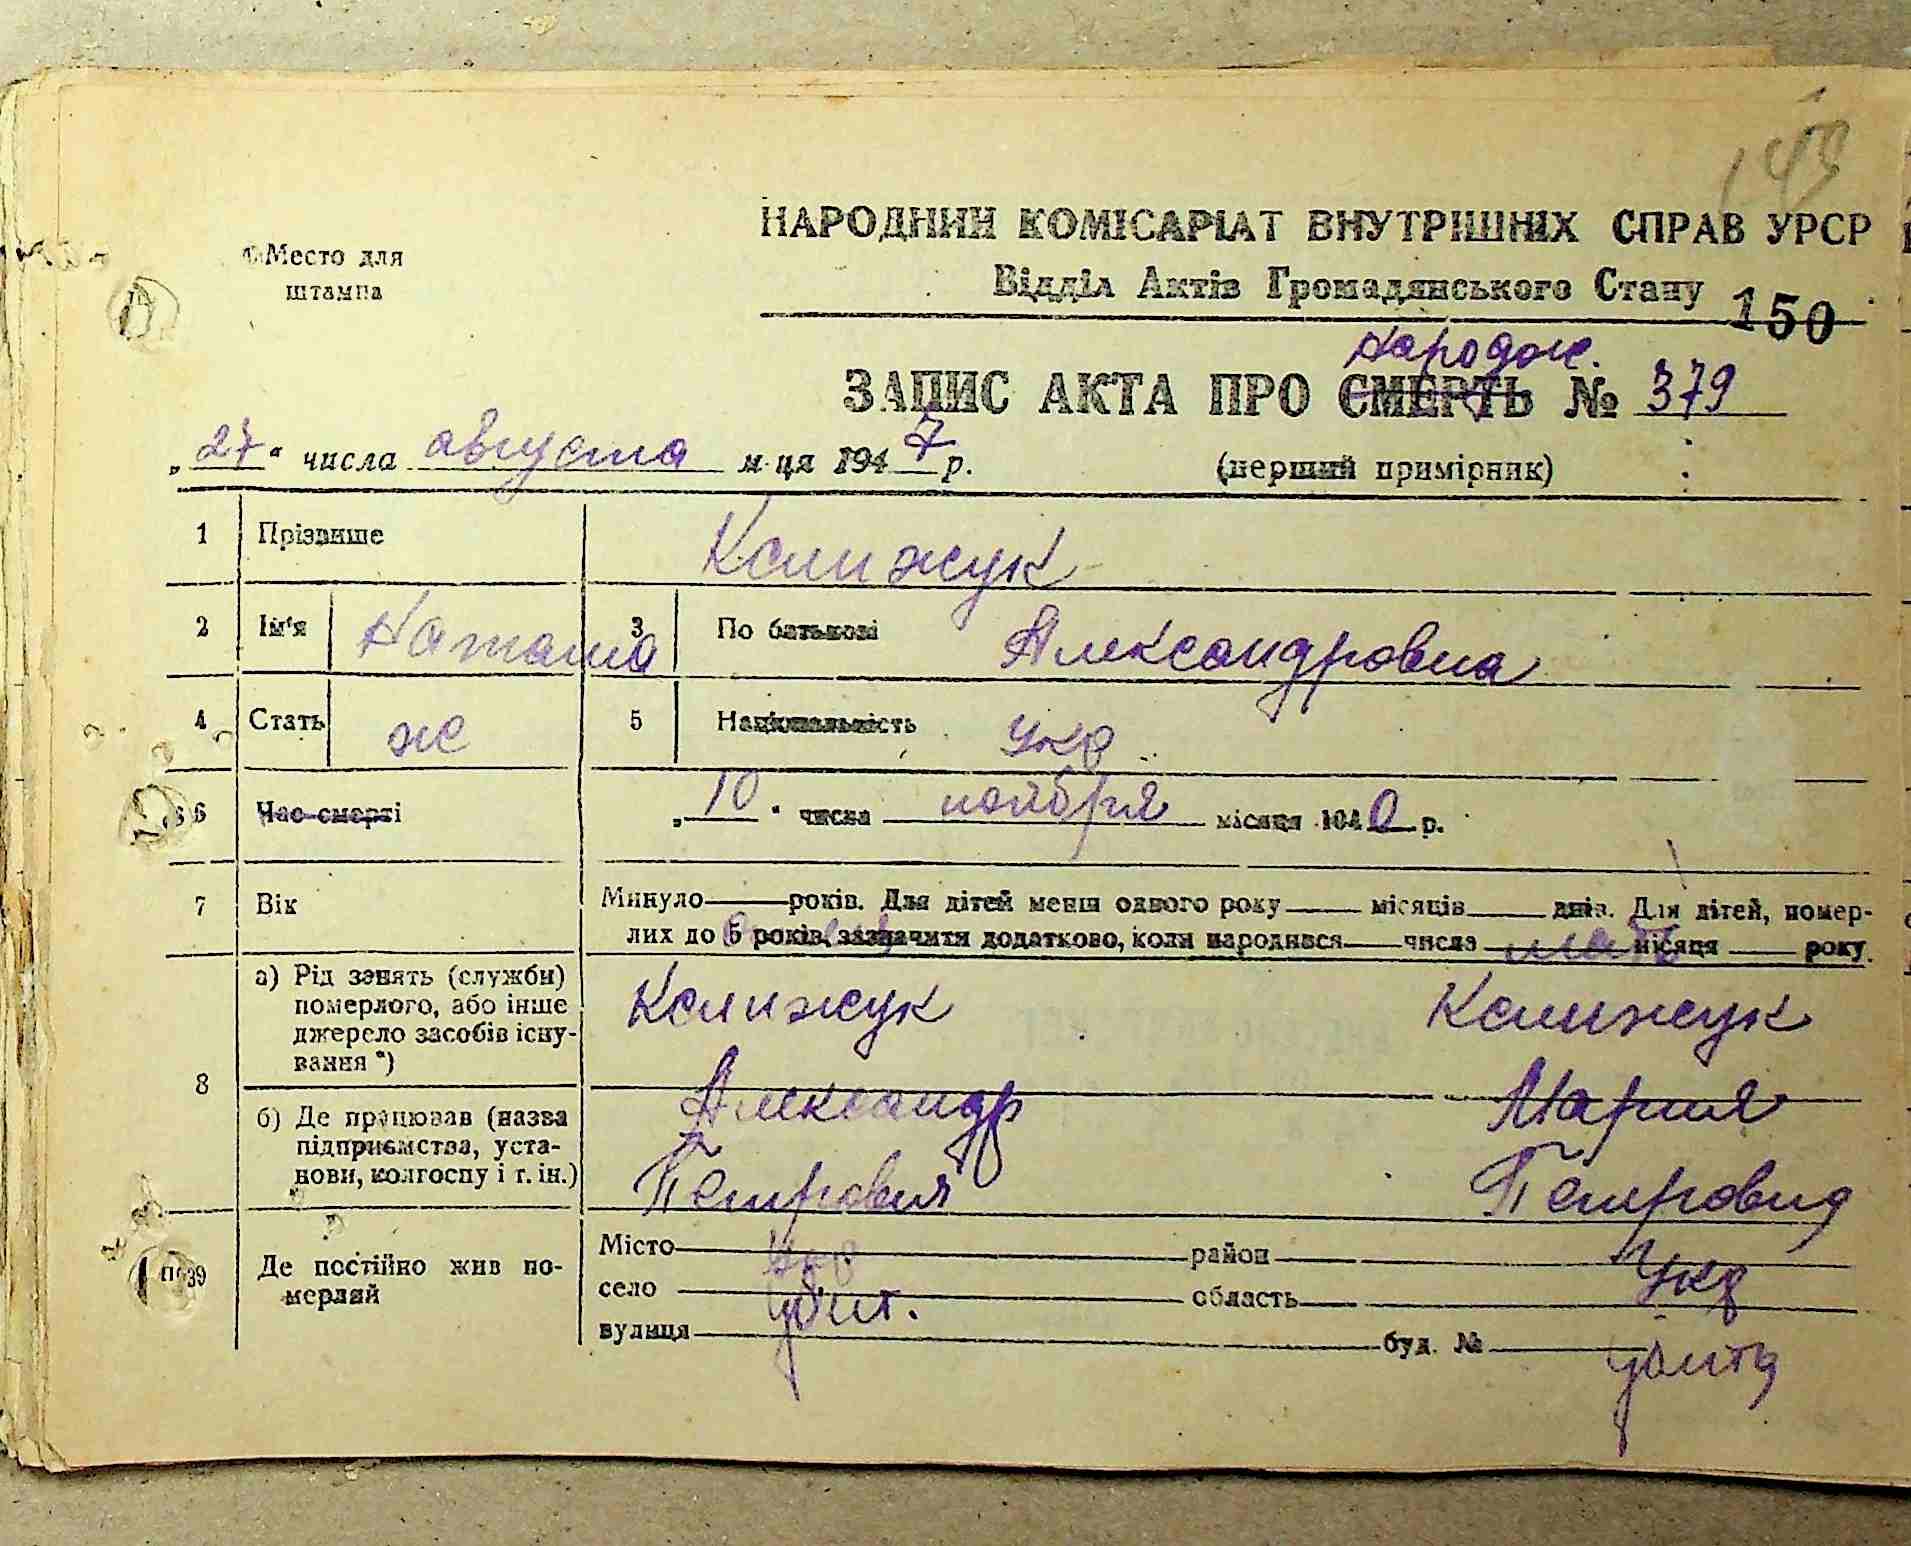 143
НАРОДНИЙ КОМІСАРІАТ ВНУТРІШНІХ СПРАВ УРСР
Место для
штампа
Відділ Актів Громадянського Стану
150
народж.
ЗАПИС АКТА ПРО СМЕРТЬ № 379
„27“ числа августа м-ця 1947 р.
(перший примірник)
1 Прізвище Колижук
2 Ім'я Наташа 3 По батькові Александровна
4 Стать ж 5 Національність укр
6 Час смерті „10“ числа ноября місяця 1940 р.
7 Вік Минуло років. Для дітей менш одного року місяців днів. Для дітей, помер-
лих до 5 років, зазначити додатково, коли народився числа місяця року
мать
8 а) Рід занять (служби)
померлого, або інше
джерело засобів існу-
вання *)
Колижук Колижук
Александр Мария
б) Де працював (назва
підприємства, уста-
нови, колгоспу і т. ін.)
Петрович Петровна
9 Де постійно жив по-
мерлий
Місто район
укр укр
село область
вулиця буд. №